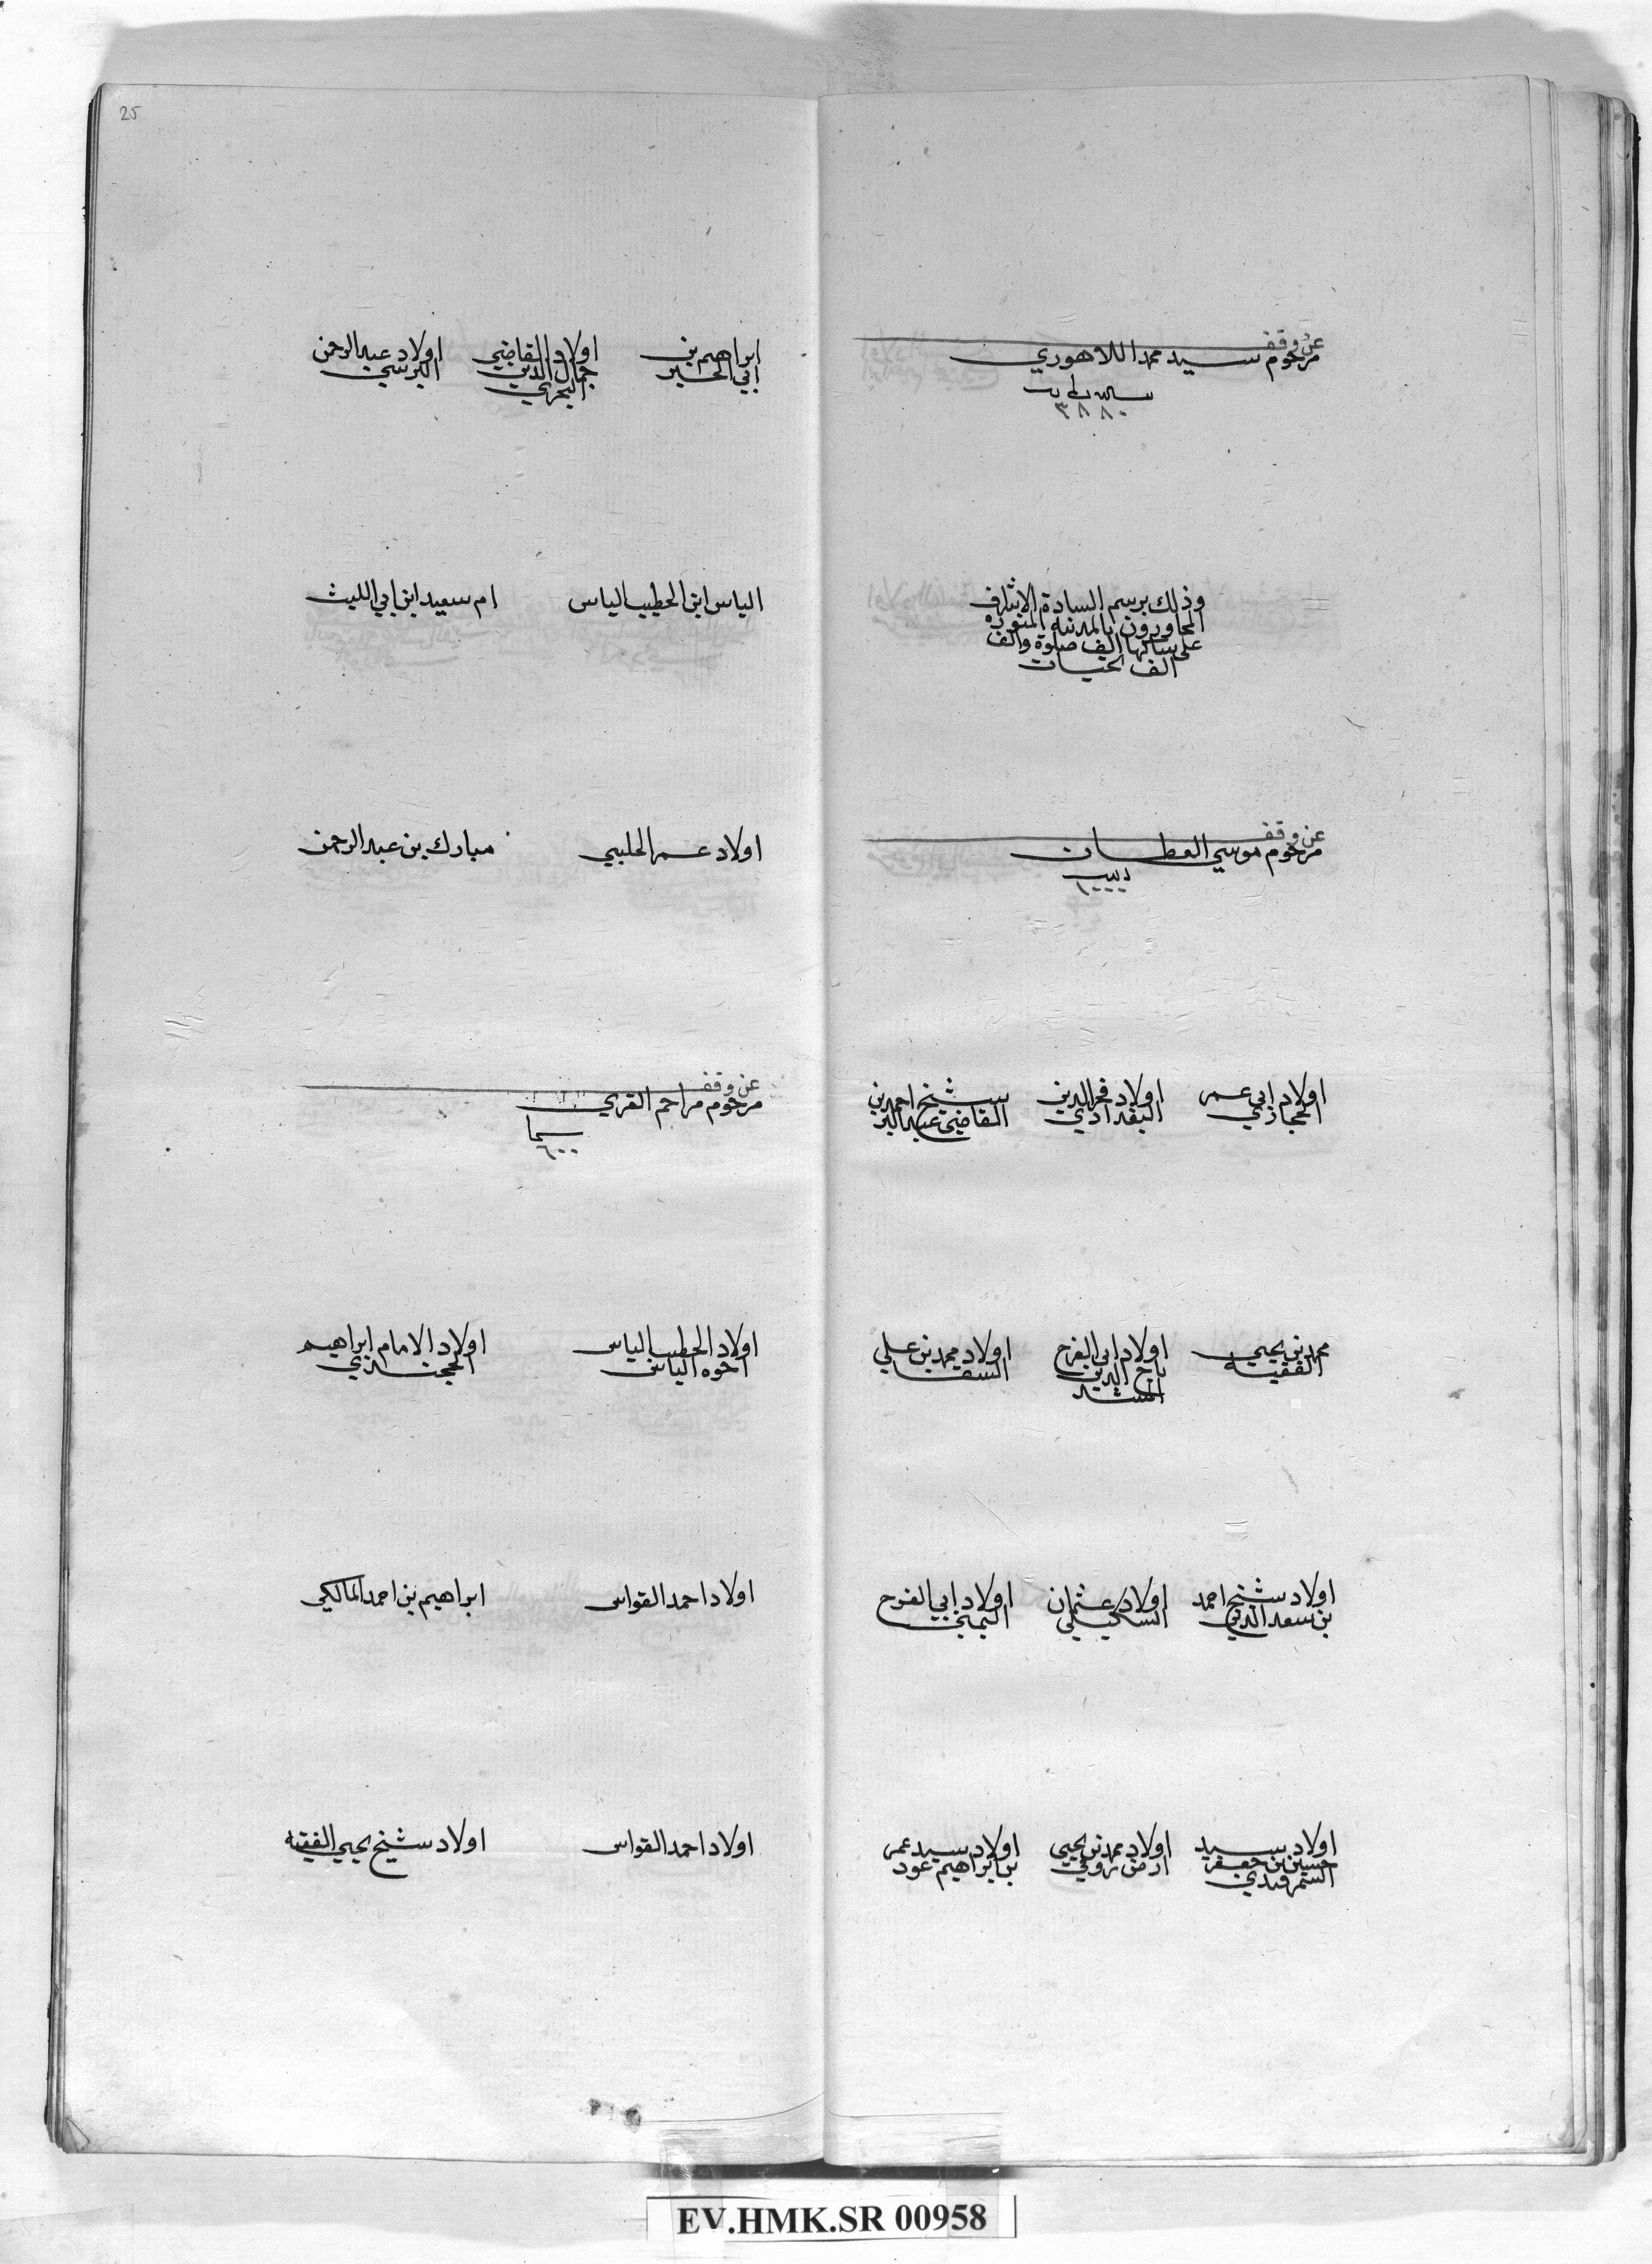 عن وقف
مرحوم سيد محمد اللاهوري
٣٨٨٠
وذلك برسم السادة الاشراف
المجاورون بالمدينة المنورة
على ساكنها الف صلوة والف
الف التحيات
عن وقف
مرحوم موسي العطـــات
١٠٠٠
اولاد ابي عمر
الحجازي
اولاد فخر الدين
البغدادي
شيخ احمد بن
القاضي عبد البر
محمد بن يحيي
الفقيه
اولاد ابي الفرج
تاج الدين
اولاد محمد بن علي
السقا
اولاد شيخ احمد
بن سعد الدين
اولاد عثمان
السكيكلي
اولاد ابي الفرح
اليمني
اولاد سيد
حسين بن جعفر
السمرقندي
اولاد محمد بن يحيي
اولاد سيد عمر
بن ابراهيم عود
25
ابراهيم بن
ابي الخير
اولاد القاضي
جمال الدين
البحري
اولاد عبد الرحمن
البرسي
الياس ابن الخطيب الياس
ام سعيد ابن ابي الليث
اولاد عمر الحلبي
مبارك بن عبد الرحمن
عن وقف
مرحوم مزاحم القري
٦٠٠
اولاد الخطيب الياس
اخوه الياس
اولاد الامام ابراهيم
الخجندي
اولاد احمد القواس
ابراهيم بن احمد المالكي
اولاد احمد القواس
اولاد شيخ يحيي الفقيه
EV.HMK.SR 00958